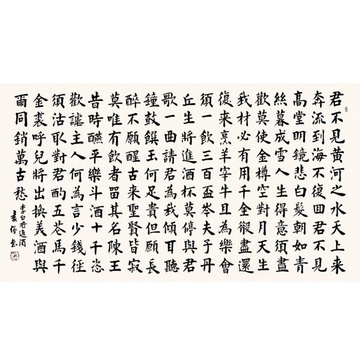 君不見黃河之水天上來
奔流到海不復回君不見
高堂明鏡悲白髮朝如青
絲暮成雪人生得意須盡
歡莫使金樽空對月天生
我材必有用千金散盡還
復來烹羊宰牛且為樂會
須一飲三百盃岑夫子丹
丘生將進酒杯莫停與君
歌一曲請君為我傾耳聽
鐘鼓饌玉何足貴但願長
醉不願醒古來聖賢皆寂
莫唯有飲者留其名陳王
昔時醼平樂斗酒十千恣
歡謔主人何為言少錢徑
須沽取對君酌五花馬千
金裘呼兒將出換美酒與
爾同銷萬古愁
李白將進酒